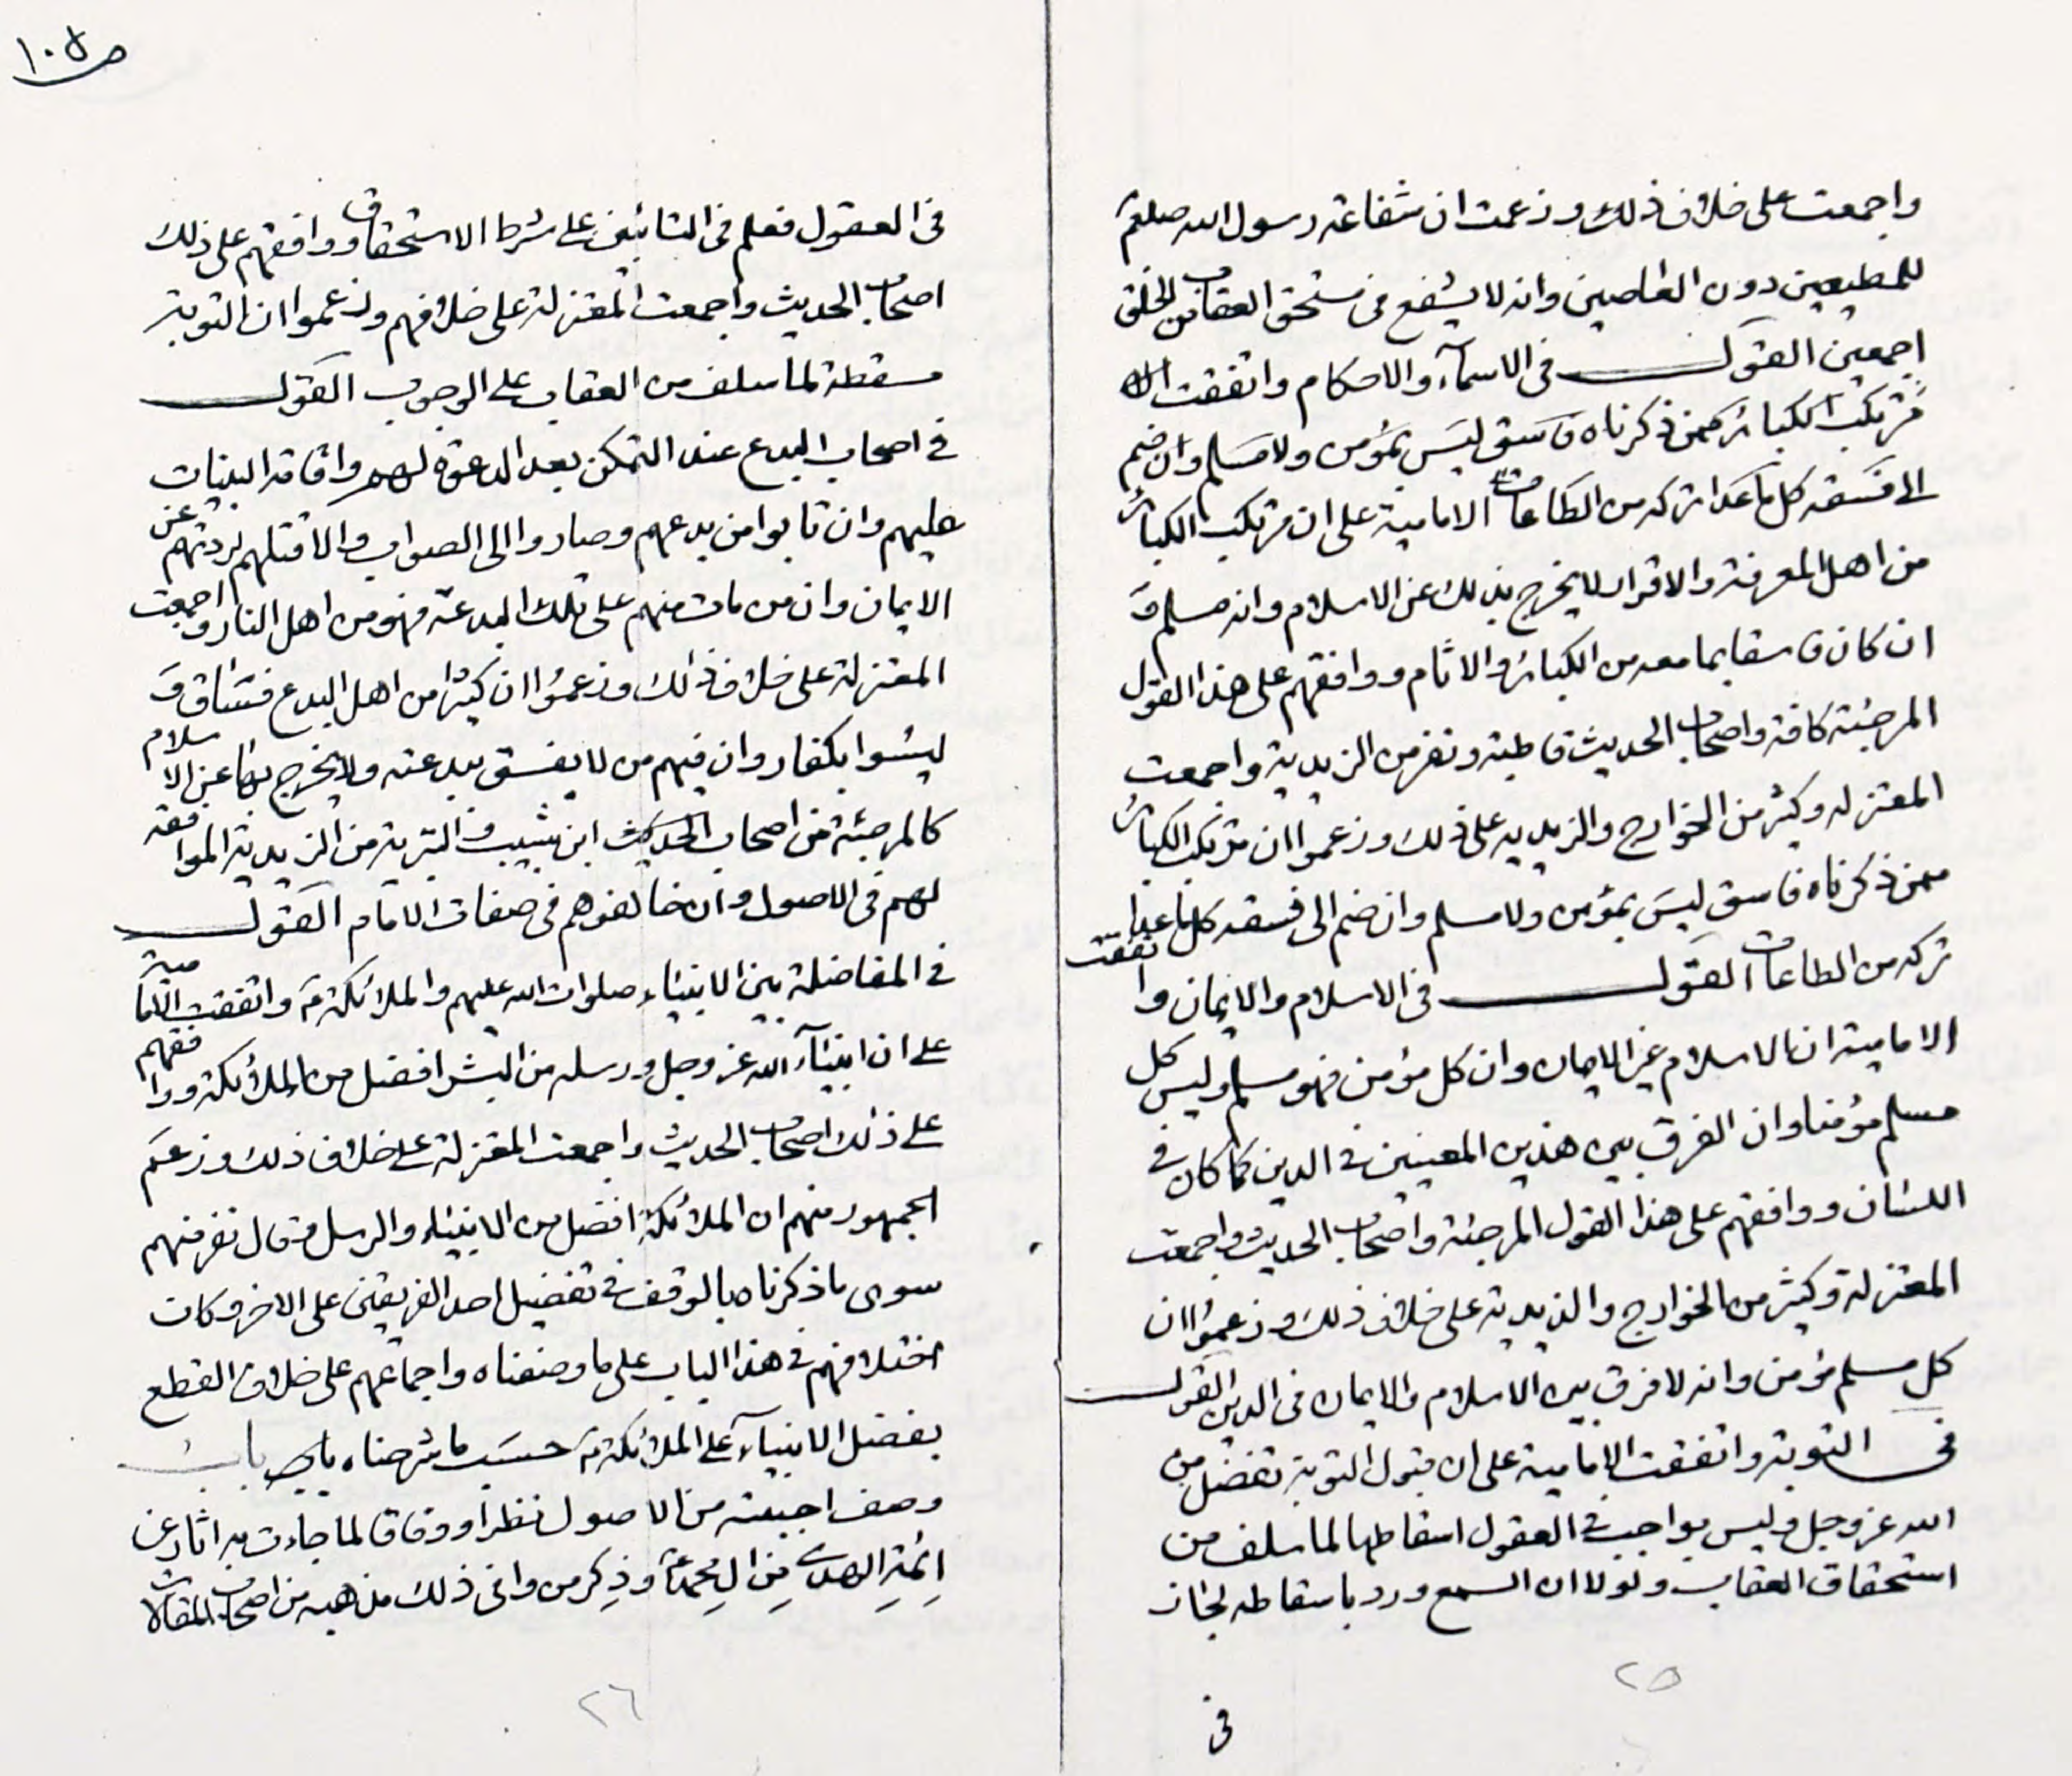 واجمعت على خلاف ذلك وزعمت ان شفاعة رسول الله صلعم
للمطيعين دون العاصين وانه لا يشفع في مستحق العقاب من الخلق
اجمعين القول في الاسمآء والاحكام واتفقت
مرتكب الكبائر ممن ذكرناه فاسق ليس بمؤمن ولا مسلم وان ضم
الى فسقه كل ما عدا تركه من الطاعات الامامية على ان مرتكب الكبائر
من اهل المعرفة والاقرار لا يخرج بذلك عن الاسلام وانه مسلم و
ان كان فاسقا بما معه من الكبائر والاثام ووافقهم على هذا القول
المرجئة كافة واصحاب الحديث قاطبة ونفر من الزيدية واجمعت
المعتزله وكثير من الخوارج والزيديه على ذلك وزعموا ان مرتكب الكبائر
ممن ذكرناه فاسق ليس بمؤمن ولا مسلم وان ضم الى فسقه كل ما عدا
تركه من الطاعات القول في الاسلام والايمان واتفقت
الامامية ان الاسلام غير الايمان وان كل مؤمن فهو مسلم وليس كل
مسلم مؤمنا وان الفرق بين هذين المعنيين في الدين كما كان في
اللسان ووافقهم على هذا القول المرجئة واصحاب الحديث واجمعت
المعتزلة وكثير من الخوارج والزيدية على خلاف ذلك وزعموا ان
كل مسلم مؤمن وانه لا فرق بين الاسلام والايمان في الدين القول
في التوبة واتفقت الامامية على ان قبول التوبة تفضل من
الله عز وجل وليس بواجب في العقول اسقاطها لما سلف من
استحقاق العقاب ولولا ان السمع ورد باسقاطه لجاز
٢٥
في
ص ١٠٥
في العقول فعلم في التائبين على شرط الاستحقاق ووافقهم على ذلك
اصحاب الحديث واجمعت المعتزلة على خلافهم وزعموا ان التوبة
مسقطة لما سلف من العقاب على الوجوب القول
في اصحاب البدع عند التمكن بعد الدعوة لهم واقامة البينات
عليهم وان تابوا من بدعهم وصاروا الى الصواب والا قتلهم لردتهم عن
الايمان وان من مات منهم على تلك البدعة فهو من اهل النار واجمعت
المعتزلة على خلاف ذلك وزعموا ان كثيرا من اهل البدع فساق و
ليسوا بكفار وان فيهم من لا يفسق ببدعته ولا يخرج بها عن الاسلام
كالمرجئة من اصحاب الحديث ابن شبيب والبترية من الزيدية الموافقة
لهم في الاصول وان خالفوهم في صفات الامام القول
في المفاضلة بين الانبياء صلوات الله عليهم والملائكة واتفقت الامامية
على ان انبيآء الله عز وجل ورسله من البشر افضل من الملائكة ووافقهم
على ذلك اصحاب الحديث واجمعت المعتزلة على خلاف ذلك وزعم
الجمهور منهم ان الملائكة افضل من الانبياء والرسل وقال نفر منهم
سوى ما ذكرناه بالوقف في تفضيل احد الفريقين على الاخر وكان
اختلافهم في هذا الباب على ما وصفناه واجماعهم على خلاف القطع
بفضل الانبيآء على الملائكة حسب ما شرحناه باب
وصف اجبيته من الاصول نظرا ووفاقا لما جاءت به اثار عن
ائمة الهدى من ال محمد وذكر من وافى ذلك مذهبه من اصحاب المقالات
٢٦